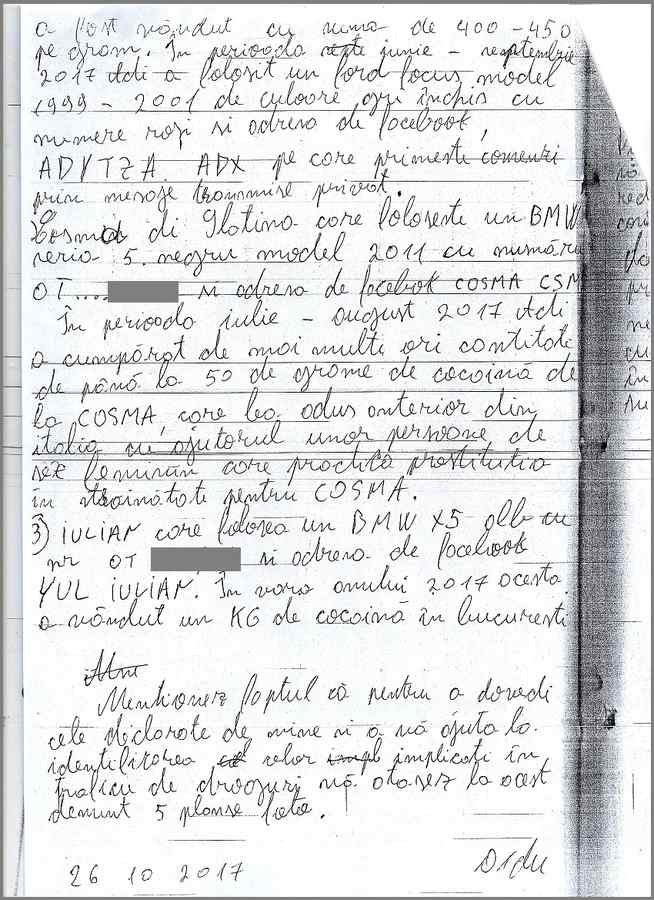 a fost vândut cu suma de 400 - 450
pe gram. În perioada este iunie - septembrie
2017 Adi a folosit un ford focus model
1999 - 2001 de culoare gri închis cu
numere roși si adresa de facebook,
ADYTZA ADX pe care primeste comenzi
prin mesaje transmise privat.
Cosma di Slatina care foloseste un BMW
seria 5. negru model 2011 cu număru
OT .... si adresa de facebok COSMA CSM
În perioada iulie - august 2017 Adi
a cumpărat de mai multi ori cantitati
de până la 50 de grame de cocaină de
la COSMA, care lea adus anterior din
italia cu ajutorul unor persoane de
sex feminin care practică prostitutia
în străinătate pentru COSMA.
3) IULIAN care folosea un BMW X5 alb cu
nr OT si adresa de facebook
YUL IULIAN. În vara anului 2017 acesta
a vândut un KG de cocaină în bucuresti
Mentionez faptul că pentru a dovedi
cele diclarate de mine si a vă ajuta la
identifitarea celor implicati în
traficu de droguri vă atasez la acest
denunt 5 planse foto.
26 10 2017